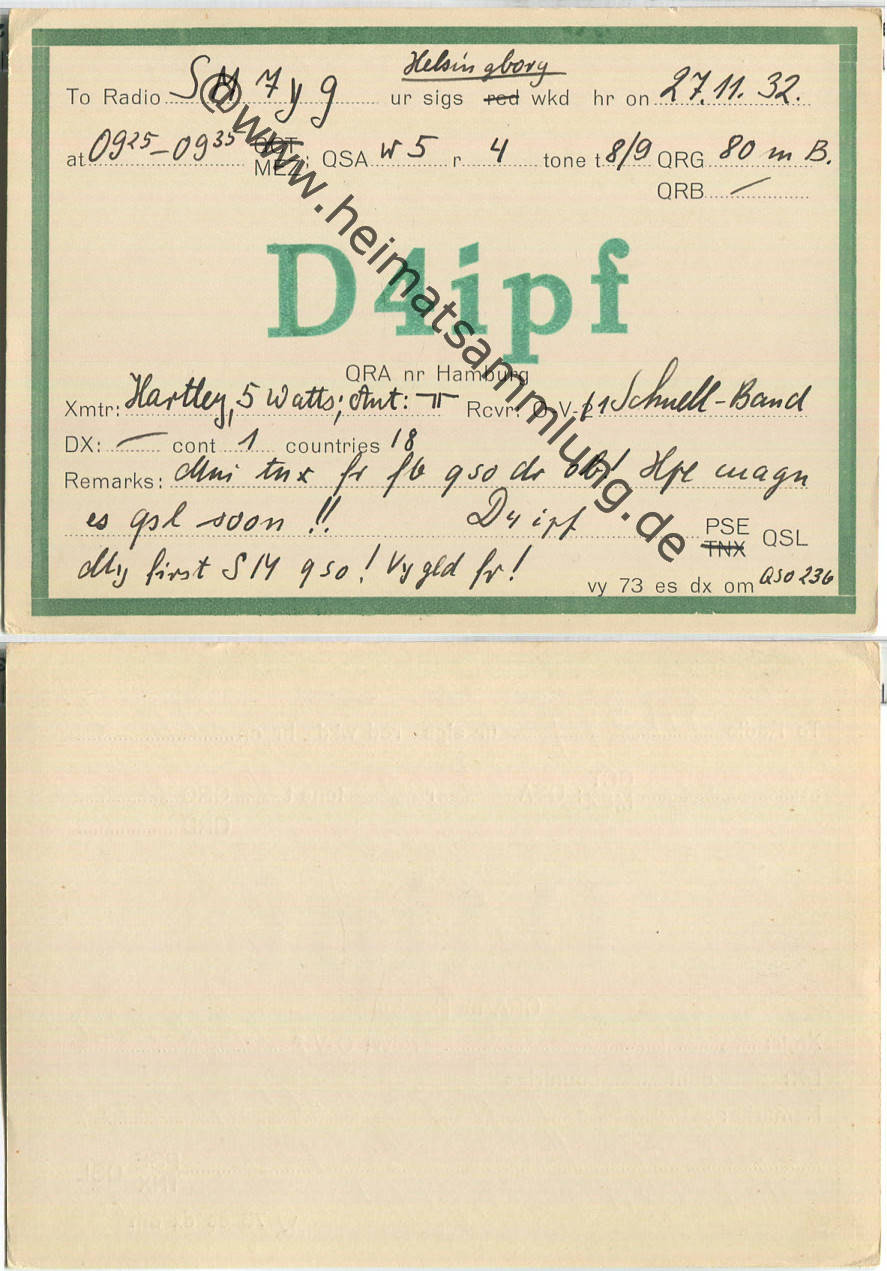 Helsingborg
To Radio SM7yg ur sigs rcd wkd hr on 27.11.32.
at 0925-0935 GMT
MEZ: QSA w5 r 4 tone t 8/9 QRG 80 m B.
QRB —
D4ipf
QRA nr Hamburg
Xmtr: Hartley, 5 Watts; Ant: Rcvr: O-V-1 Schnell-Band
DX: — cont 1 countries 18
Remarks: Mni tnx fr fb qso dr ob! Hpe
es qsl soon!! D4ipf PSE
TNX QSL
My first SM qso! Vy gld fr!
vy 73 es dx om QSO 236
@www.heimatsammlung.de